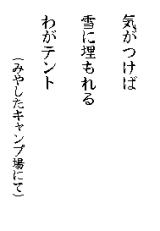 気がつけば
雪に埋もれる
わがテント
(みやしたキャンプ場にて)